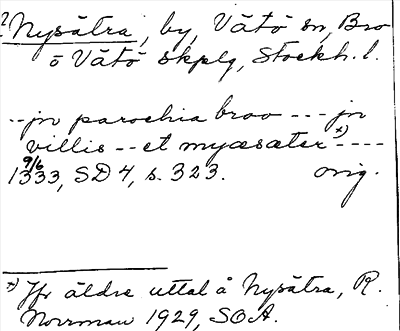 ?Nysätra, by, Vätö sn, Bro
o Vätö skplg, Stockh. l.
--jn parochia broo --- jn
villis -- et myæsæter x) ----
9/6
1333, SD 4, s. 323. orig.
x) Jfr äldre uttal å Nysätra, R.
Norrman 1929, SOA.